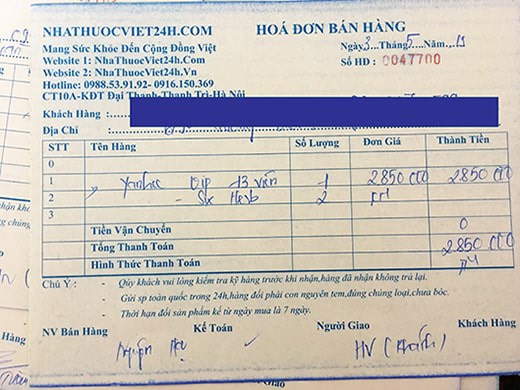 NHATHUOCVIET24H.COM
HOÁ ĐƠN BÁN HÀNG
Mang Sức Khỏe Đến Cộng Đồng Việt
Ngày 3 Tháng 5 Năm 19
Website 1: NhaThuocViet24h.Com
Số HĐ : 0047700
Website 2: NhaThuocViet24h.Vn
Hotline: 0988.53.91.92- 0916.150.369
CT10A-KĐT Đại Thanh-Thanh Trì-Hà Nội
Khách Hàng :
Địa Chỉ
STT Tên Hàng Số Lượng Đơn Giá Thành Tiền
0
1 Yanhee Vip 13 viên 1 2850 000 2850 000
2 - Herb 2
3
Tiền Vận Chuyển 0
Tổng Thanh Toán 2850 000
Hình Thức Thanh Toán
Chú Ý : - Qúy khách vui lòng kiểm tra kỹ hàng trước khi nhận,hàng đã nhận không trả lại.
- Gửi sp toàn quốc trong 24h,hàng đổi phải con nguyên tem,đúng chủng loại,chưa bóc.
- Thời hạn đổi sản phẩm kể từ ngày mua là 7 ngày.
NV Bán Hàng Kế Toán Người Giao Khách Hàng
HV (Khánh)